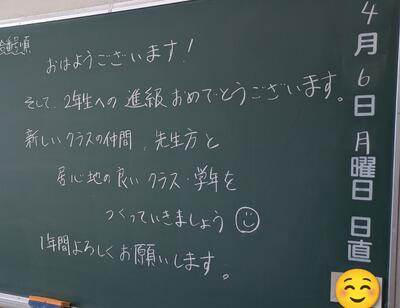 おはようございます!
そして、2年生への進級おめでとうございます。
新しいクラスの仲間、先生方と
居心地の良いクラス・学年を
つくっていきましょう
1年間よろしくお願いします。
4月6日月曜日 日直